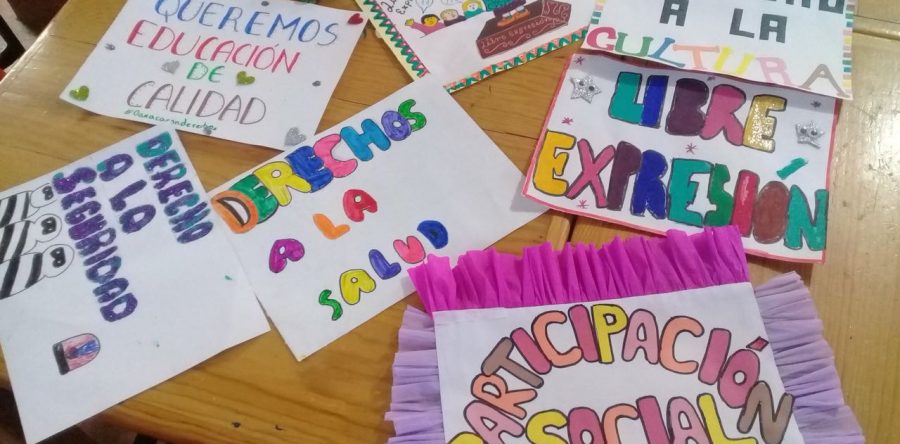 QUEREMOS
EDUCACIÓN
DE
CALIDAD
A
LA
CULTURA
LIBRE
EXPRESIÓN
DERECHOS
A LA
SALUD
DERECHO
A LA
SEGURIDAD
PARTICIPACIÓN
SOCIAL